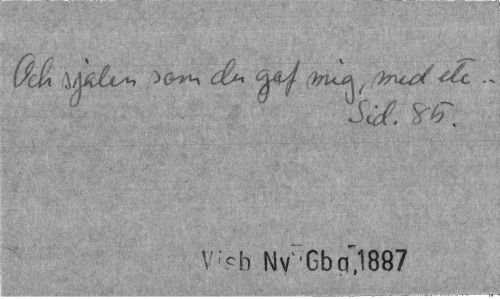 Och själen som du gaf mig, med etc..
Sid. 85.
Visb Nv Gbg, 1887